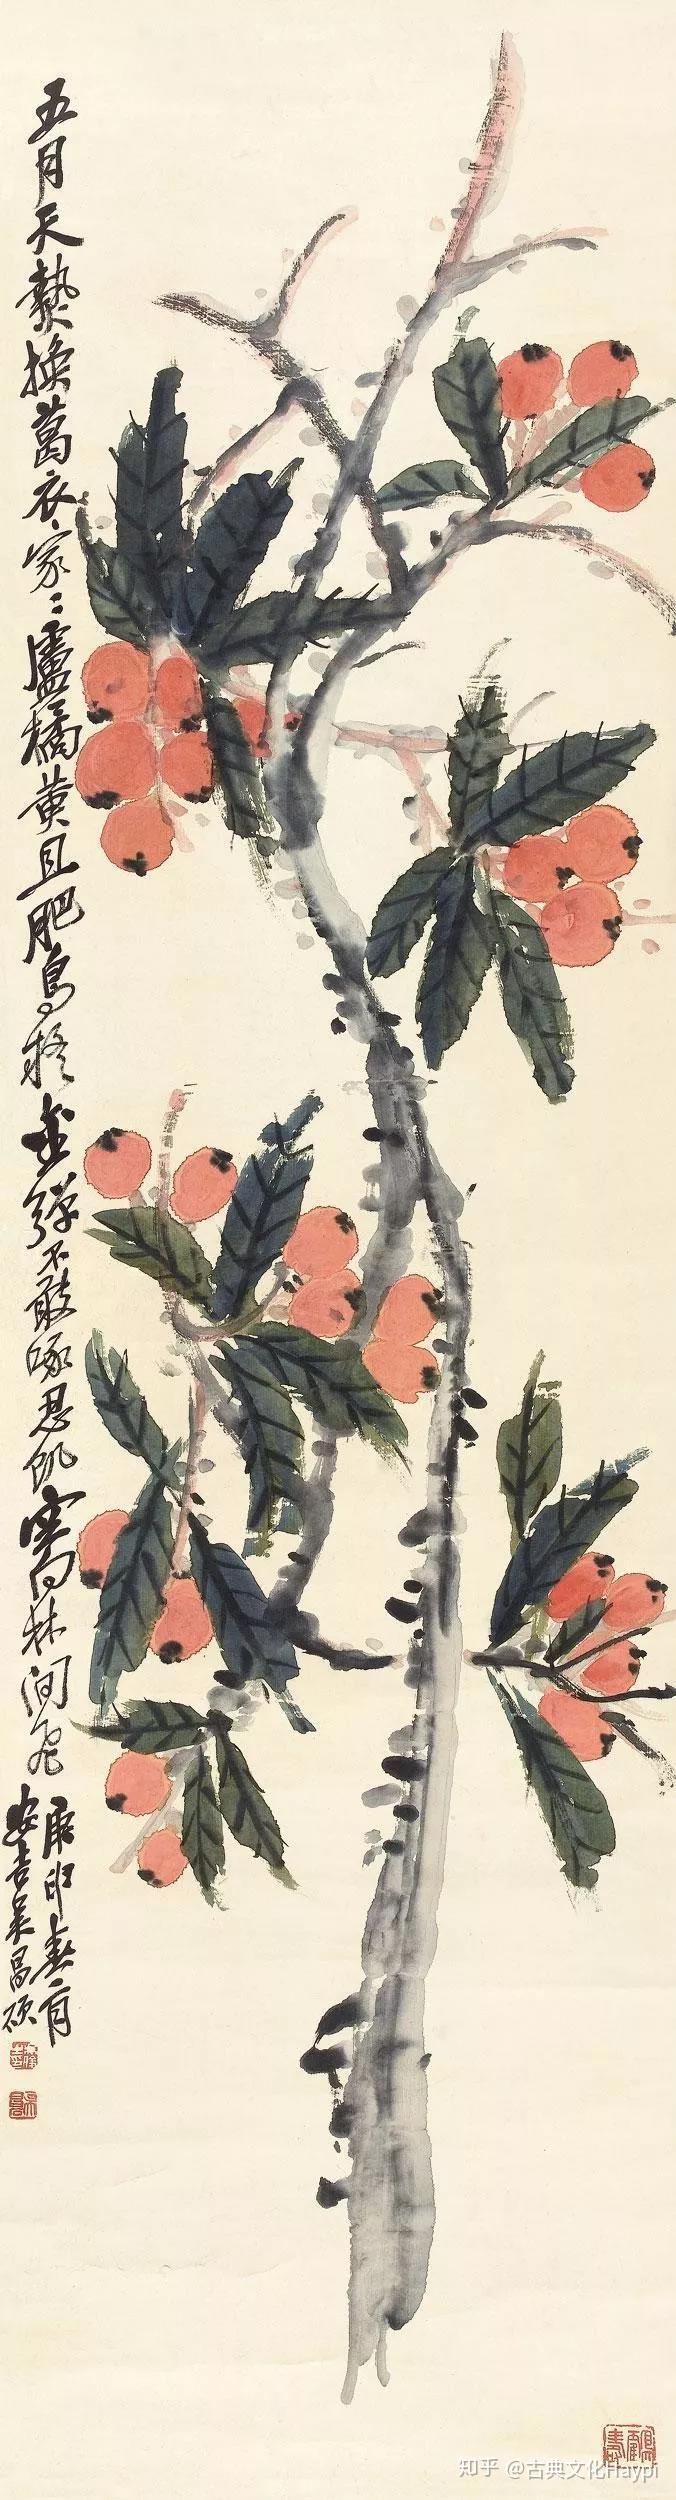 五月天熱換葛衣家〻盧橘黃且肥鳥疑金彈不敢啄忍飢空向林間飛
卯春
安吉吳昌碩
知乎 @古典文化Haypi